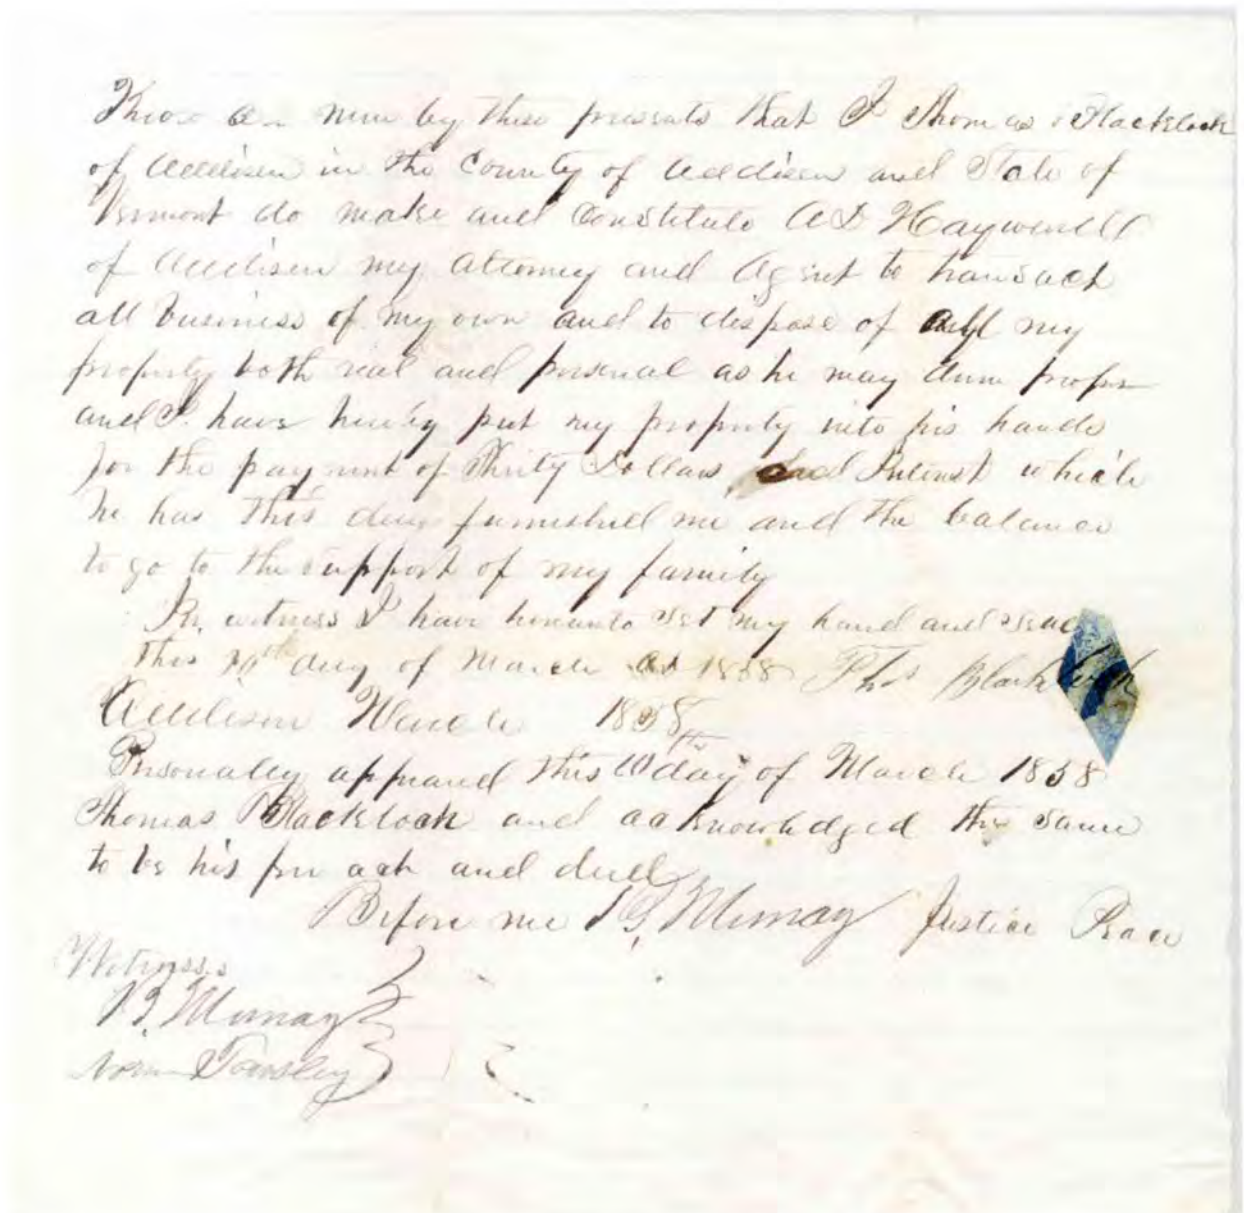 Know all men by these presents that I Thomas Blacklock
of Addison in the County of Addison and State of
Vermont do make and Constitute A D Haywerd
of Addison my Attorney and Agent to transact
all business of my own and to dispose of all my
property both real and personal as he may deem proper
and I have hereby put my property into his hands
for the payment of Thirty Dollars, and Interest which
he has this day furnished me and the balance
to go to the support of my family
In witness I have hereunto set my hand and seal
this 10th day of March AD 1858 Thos Blacklock
Addison March 1858
Personaley appeared this 10th day of March 1858
Thomas Blacklock and acknowledged the same
to be his free act and deed
Before me B. Murray Justice Peace
Witness
B. Murray
Townsley